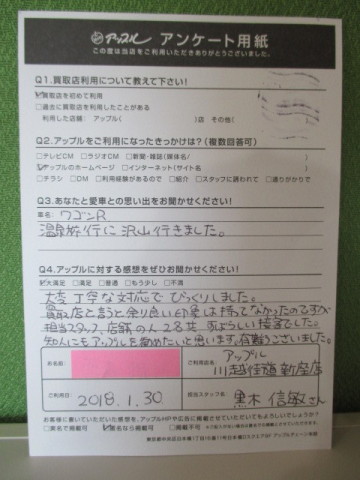 アップル アンケート用紙
この度は当店をご利用いただきありがとうございました。
Q1.買取店利用について教えて下さい!
☑買取店を初めて利用
□過去に買取店を利用したことがある
利用した店舗:アップル( )店 その他( )
Q2.アップルをご利用になったきっかけは?(複数回答可)
□テレビCM □ラジオCM □新聞・雑誌(媒体名/ )
☑アップルのホームページ □インターネット(サイト名 )
□チラシ □DM □利用経験があるので □紹介 □スタッフに誘われて □通りがかりで
Q3.あなたと愛車との思い出をお聞かせください!
車名: ワゴンR
温泉旅行に沢山行きました。
Q4.アップルに対する感想をぜひお聞かせください!
☑大満足 □満足 □普通 □もう少し □不満
大変丁寧な対応でびっくりしました。
買取店と言うと余り良い印象は持ってなかったのですが
担当スタッフ、店舗の人2名共すばらしい接客でした。
知人にもアップルを勧めたいと思います。有難うございました。
お名前:
ご利用店名: アップル
川越街道新座店
ご利用日: 2018.1.30
担当スタッフ名: 黒木 信敏さん
お客様に書いていただいた感想を、アップルHPや広告に掲載させていただいてもよろしいでしょうか?
□実名で掲載可 ☑匿名なら掲載可 □掲載不可